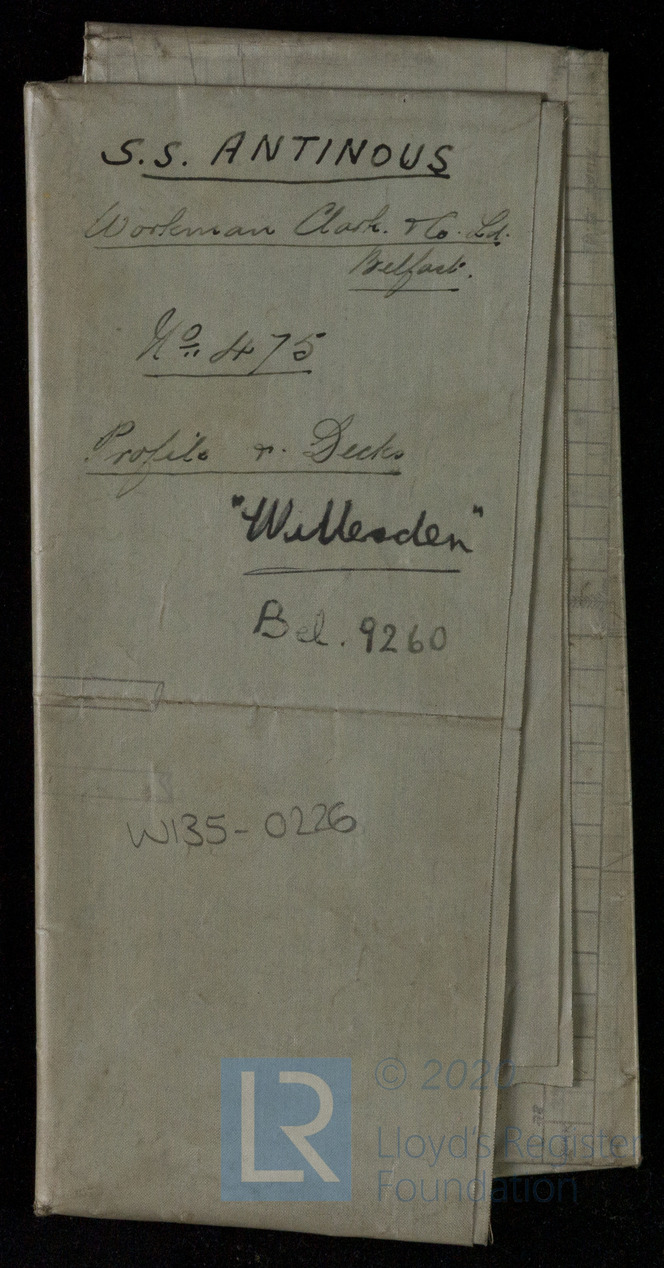 S.S. ANTINOUS
Workman Clark. & Co. Ld.
Belfast.
No. 475
Profile & Decks
"Willesden"
Bel. 9260
W135-0226
LR
© 2020
Lloyd's Register
Foundation